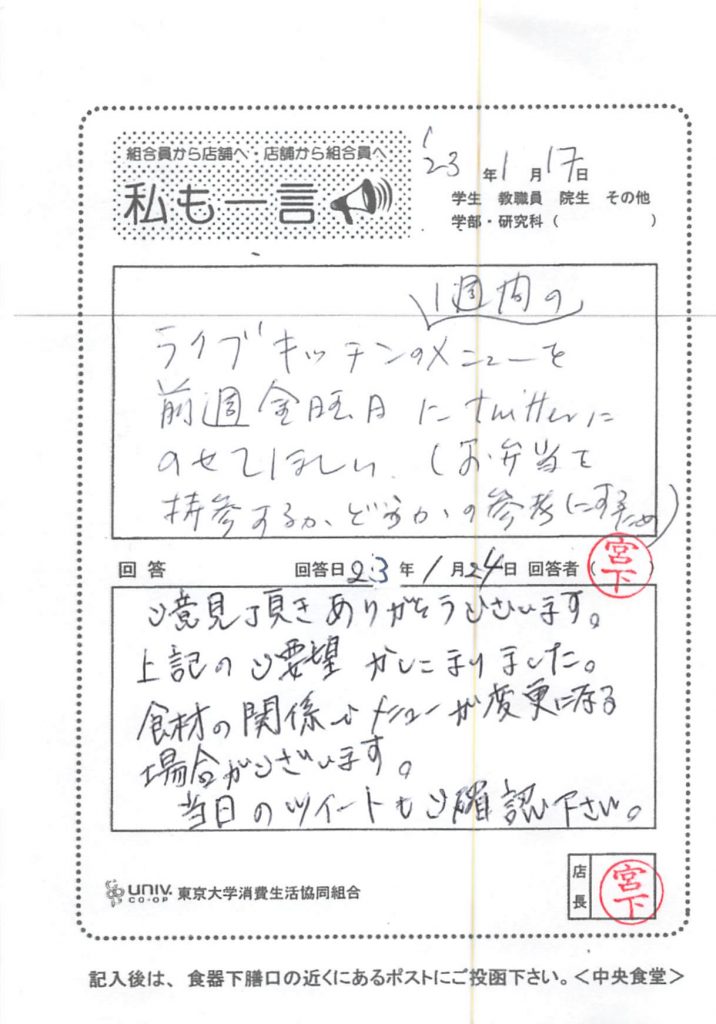 組合員から店舗へ・店舗から組合員へ
私も一言
'23年1月17日
学生 教職員 院生 その他
学部・研究科( )
1週間の
ライブキッチンのメニューを
前週金曜日にtwitterに
のせてほしい。(お弁当を
持参するか、どうかの参考にするため)
回答 回答日23年1月24日 回答者(宮下)
ご意見頂きありがとうございます。
上記のご要望かしこまりました。
食材の関係でメニューが変更になる
場合がございます。
当日のツイートもご確認下さい。
UNIV. CO-OP 東京大学消費生活協同組合
店長 宮下
記入後は、食器下膳口の近くにあるポストにご投函下さい。<中央食堂>